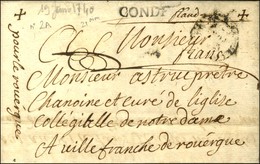 19 janv 1740
N° 2A
CONDE
+
+
Monsieur
franc
Monsieur astruc pretre
Chanoine et curé de leglise
Collégitelle de notre dame
A ville franche de rouergue
pour le rouergue